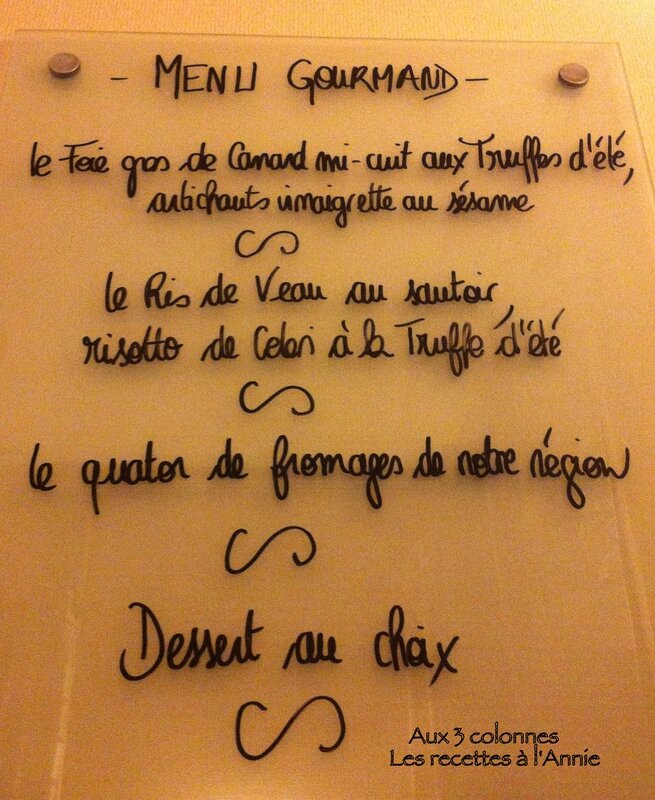 - MENU GOURMAND -
le Foie gras de Canard mi-cuit aux Truffes d'été,
artichauts vinaigrette au sésame
le Ris de Veau au sautoir,
risotto de Celeri à la Truffe d'été
le quatuor de fromages de notre région
Dessert au choix
Aux 3 colonnes
Les recettes à l'Annie